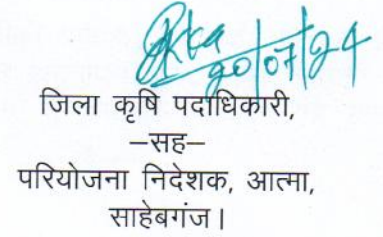 20/07/24
जिला कृषि पदाधिकारी,
–सह–
परियोजना निदेशक, आत्मा,
साहेबगंज।